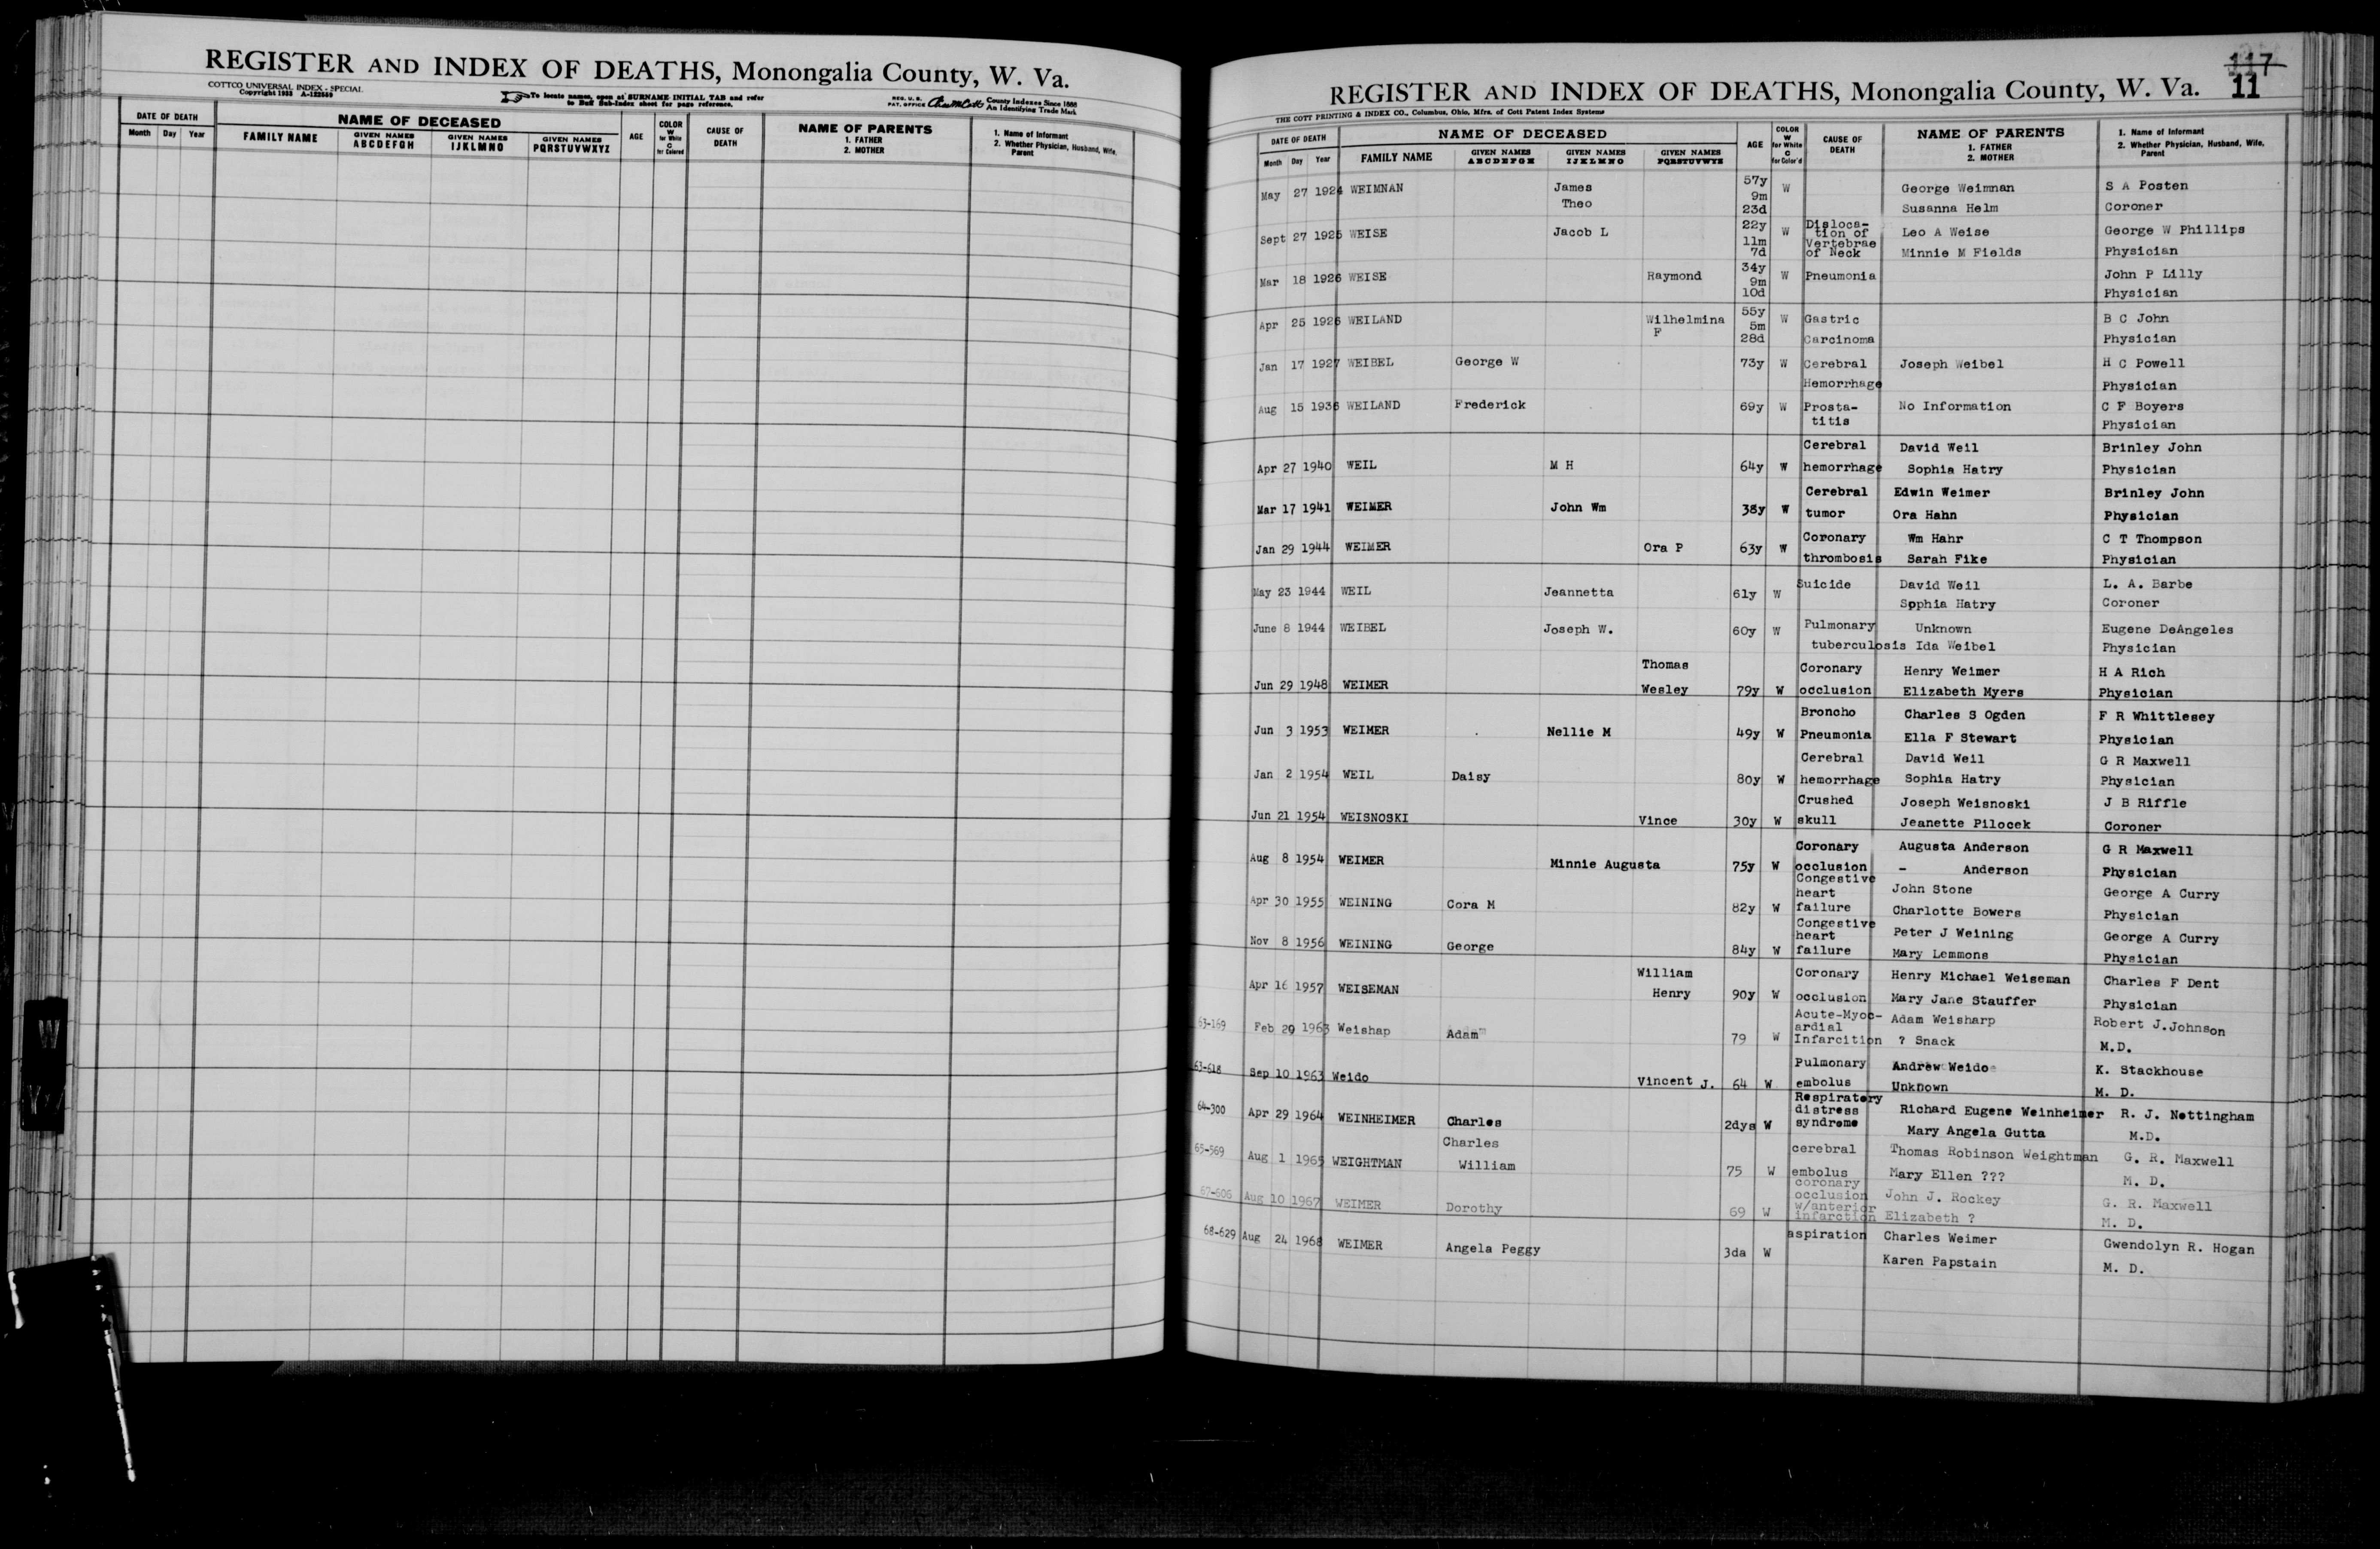 REGISTER AND INDEX OF DEATHS, Monongalia County, W. Va.
COTTCO UNIVERSAL INDEX - SPECIAL
Copyright 1933 A-122589
To locate names, open at SURNAME INITIAL TAB and refer
to Buff Sub-Index sheet for page reference.
REG. U. S.
PAT. OFFICE
County Indexes Since 1888
An Identifying Trade Mark
DATE OF DEATH
Month Day Year
NAME OF DECEASED
FAMILY NAME
GIVEN NAMES
ABCDEFGH
GIVEN NAMES
IJKLMNO
GIVEN NAMES
PQRSTUVWXYZ
AGE
COLOR
W
for White
C
for Colored
CAUSE OF
DEATH
NAME OF PARENTS
1. FATHER
2. MOTHER
1. Name of Informant
2. Whether Physician, Husband, Wife,
Parent
117
11
REGISTER AND INDEX OF DEATHS, Monongalia County, W. Va.
THE COTT PRINTING & INDEX CO., Columbus, Ohio, Mfrs. of Cott Patent Index Systems
DATE OF DEATH
Month Day Year
NAME OF DECEASED
FAMILY NAME
GIVEN NAMES
ABCDEFGH
GIVEN NAMES
IJKLMNO
GIVEN NAMES
PQRSTUVWYZ
AGE
COLOR
W
for White
C
for Color'd
CAUSE OF
DEATH
NAME OF PARENTS
1. FATHER
2. MOTHER
1. Name of Informant
2. Whether Physician, Husband, Wife,
Parent
May 27 1924 WEIMNAN James 57y W George Weimnan S A Posten
Theo 9m
23d Susanna Helm Coroner
Sept 27 1925 WEISE Jacob L 22y W Disloca- Leo A Weise George W Phillips
tion of
11m Vertebrae
7d of Neck Minnie M Fields Physician
Mar 18 1926 WEISE Raymond 34y W Pneumonia John P Lilly
9m
10d Physician
Apr 25 1926 WEILAND Wilhelmina 55y W Gastric B C John
F 5m
28d Carcinoma Physician
Jan 17 1927 WEIBEL George W 73y W Cerebral Joseph Weibel H C Powell
Hemorrhage Physician
Aug 15 1936 WEILAND Frederick 69y W Prosta- No Information C F Boyers
titis Physician
Cerebral David Weil Brinley John
Apr 27 1940 WEIL M H 64y W hemorrhage Sophia Hatry Physician
Cerebral Edwin Weimer Brinley John
Mar 17 1941 WEIMER John Wm 38y W tumor Ora Hahn Physician
Coronary Wm Hahr C T Thompson
Jan 29 1944 WEIMER Ora P 63y W thrombosis Sarah Fike Physician
Suicide David Weil L. A. Barbe
May 23 1944 WEIL Jeannetta 61y W Sophia Hatry Coroner
June 8 1944 WEIBEL Joseph W. 60y W Pulmonary Unknown Eugene DeAngeles
tuberculosis Ida Weibel Physician
Thomas Coronary Henry Weimer H A Rich
Jun 29 1948 WEIMER Wesley 79y W occlusion Elizabeth Myers Physician
Broncho Charles S Ogden F R Whittlesey
Jun 3 1953 WEIMER Nellie M 49y W Pneumonia Ella F Stewart Physician
Cerebral David Weil G R Maxwell
Jan 2 1954 WEIL Daisy 80y W hemorrhage Sophia Hatry Physician
Crushed Joseph Weisnoski J B Riffle
Jun 21 1954 WEISNOSKI Vince 30y W skull Jeanette Pilocek Coroner
Coronary Augusta Anderson G R Maxwell
Aug 8 1954 WEIMER Minnie Augusta 75y W occlusion - Anderson Physician
Congestive
heart John Stone George A Curry
Apr 30 1955 WEINING Cora M 82y W failure Charlotte Bowers Physician
Congestive
heart Peter J Weining George A Curry
Nov 8 1956 WEINING George 84y W failure Mary Lemmons Physician
William Coronary Henry Michael Weiseman Charles F Dent
Apr 16 1957 WEISEMAN Henry 90y W occlusion Mary Jane Stauffer Physician
Acute-Myoc- Adam Weisharp Robert J.Johnson
ardial
63-169 Feb 20 1963 Weishap Adam 79 W Infarcition ? Snack M.D.
Pulmonary Andrew Weido K. Stackhouse
63-618 Sep 10 1963 Weido Vincent J. 64 W embolus Unknown M. D.
Respiratory
distress Richard Eugene Weinheimer R. J. Nottingham
64-300 Apr 29 1964 WEINHEIMER Charles 2dys W syndrome Mary Angela Gutta M.D.
Charles cerebral Thomas Robinson Weightman G. R. Maxwell
65-569 Aug 1 1965 WEIGHTMAN William 75 W embolus Mary Ellen ??? M. D.
coronary
occlusion John J. Rockey G. R. Maxwell
w/anterior
67-606 Aug 10 1967 WEIMER Dorothy 69 W infarction Elizabeth ? M. D.
aspiration Charles Weimer Gwendolyn R. Hogan
68-629 Aug 24 1968 WEIMER Angela Peggy 3da W Karen Papstain M. D.
W